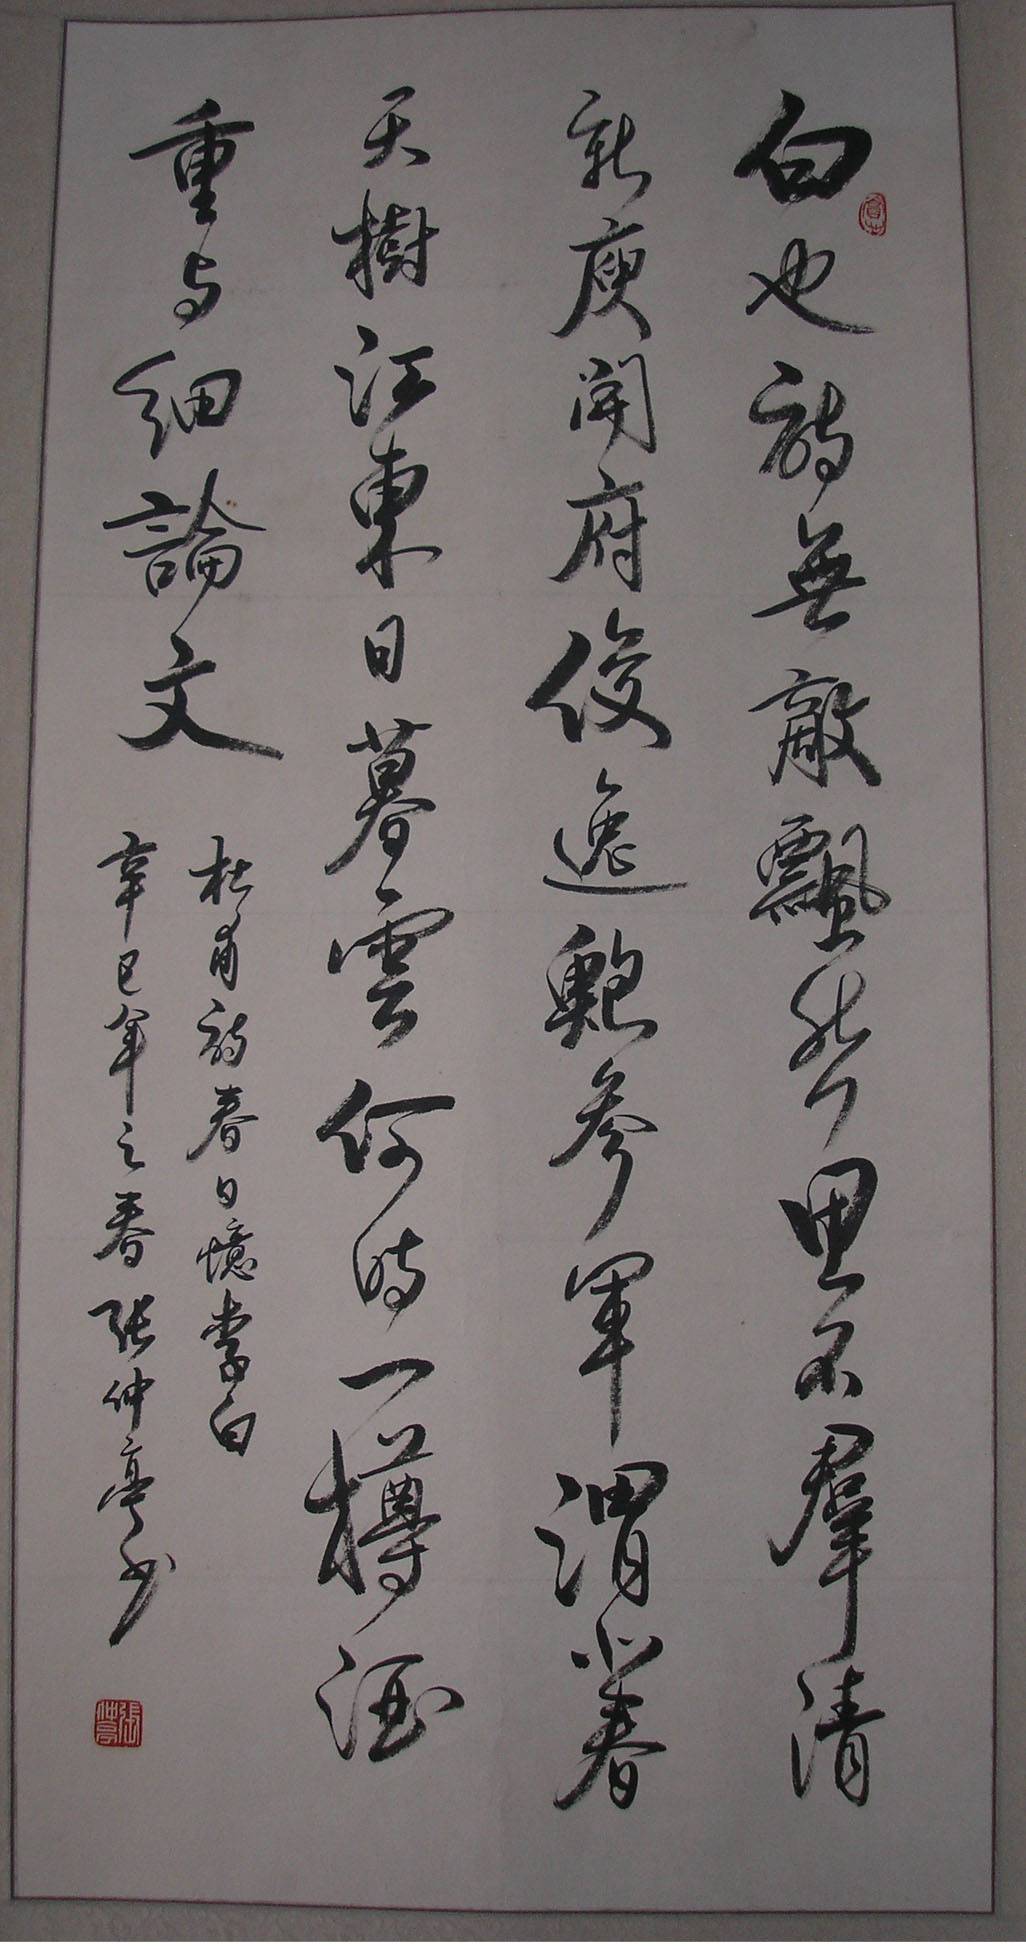 白也詩無敵飄然思不羣清
新庾開府俊逸鮑參軍渭北春
天樹江東日暮雲何時一樽酒
重与細論文
杜甫詩春日憶李白
辛巳年之春張仲亭书
張仲亭